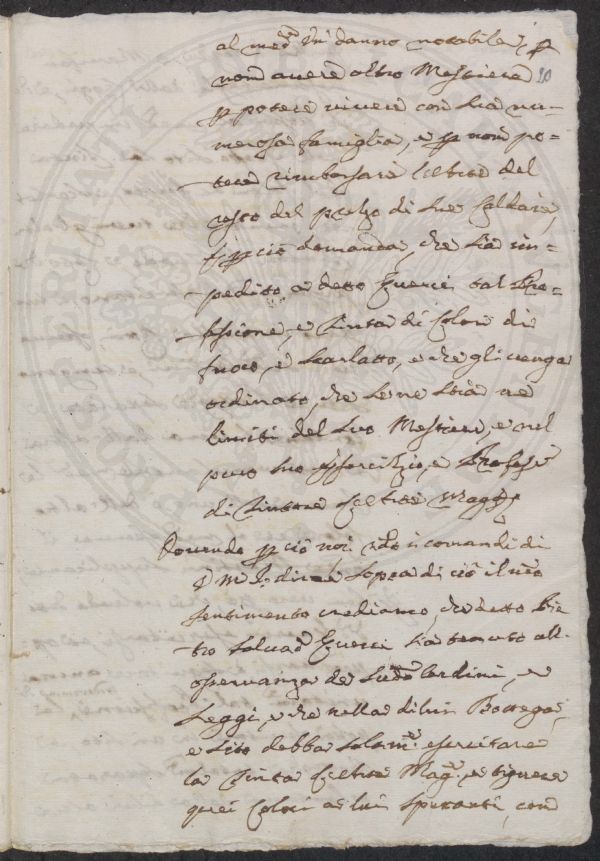 al med.º un danno notabile, p
non avere altro Mestiere
p potere vivere con sua nu=
merosa famiglia, e p non po=
tere rimborsarsi
resto del prezzo di sue Caldaie,
e p ciò domanda, che sia im=
pedito a detto Guerci tal Pro=
fessione, e Tinta di Colori di
fuoco, e Scarlatto, e che gli venga
ordinato, che se ne stia ne
limiti del suo Mestiere, e nel
puro suo essercizio, e
di Tintore
Dovendo p ciò noi i comandi di
dire sopra di ciò il nro
sentimento crediamo, che detto Pie=
tro Salvad.e Guerci sia tenuto all'
osservanza de Sud.i Ordini, e
Leggi, e che nella di lui Bottega,
e sito debba solam.e esercitare
la Tinta e tignere
quei Colori a lui spettanti, con
20